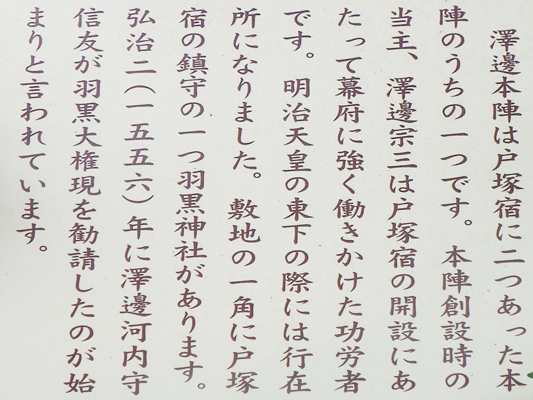 澤邊本陣は戸塚宿に二つあった本
陣のうちの一つです。本陣創設時の
当主、澤邊宗三は戸塚宿の開設にあ
たって幕府に強く働きかけた功労者
です。明治天皇の東下の際には行在
所になりました。敷地の一角に戸塚
宿の鎮守の一つ羽黒神社があります。
弘治二（一五五六）年に澤邊河内守
信友が羽黒大権現を勧請したのが始
まりと言われています。